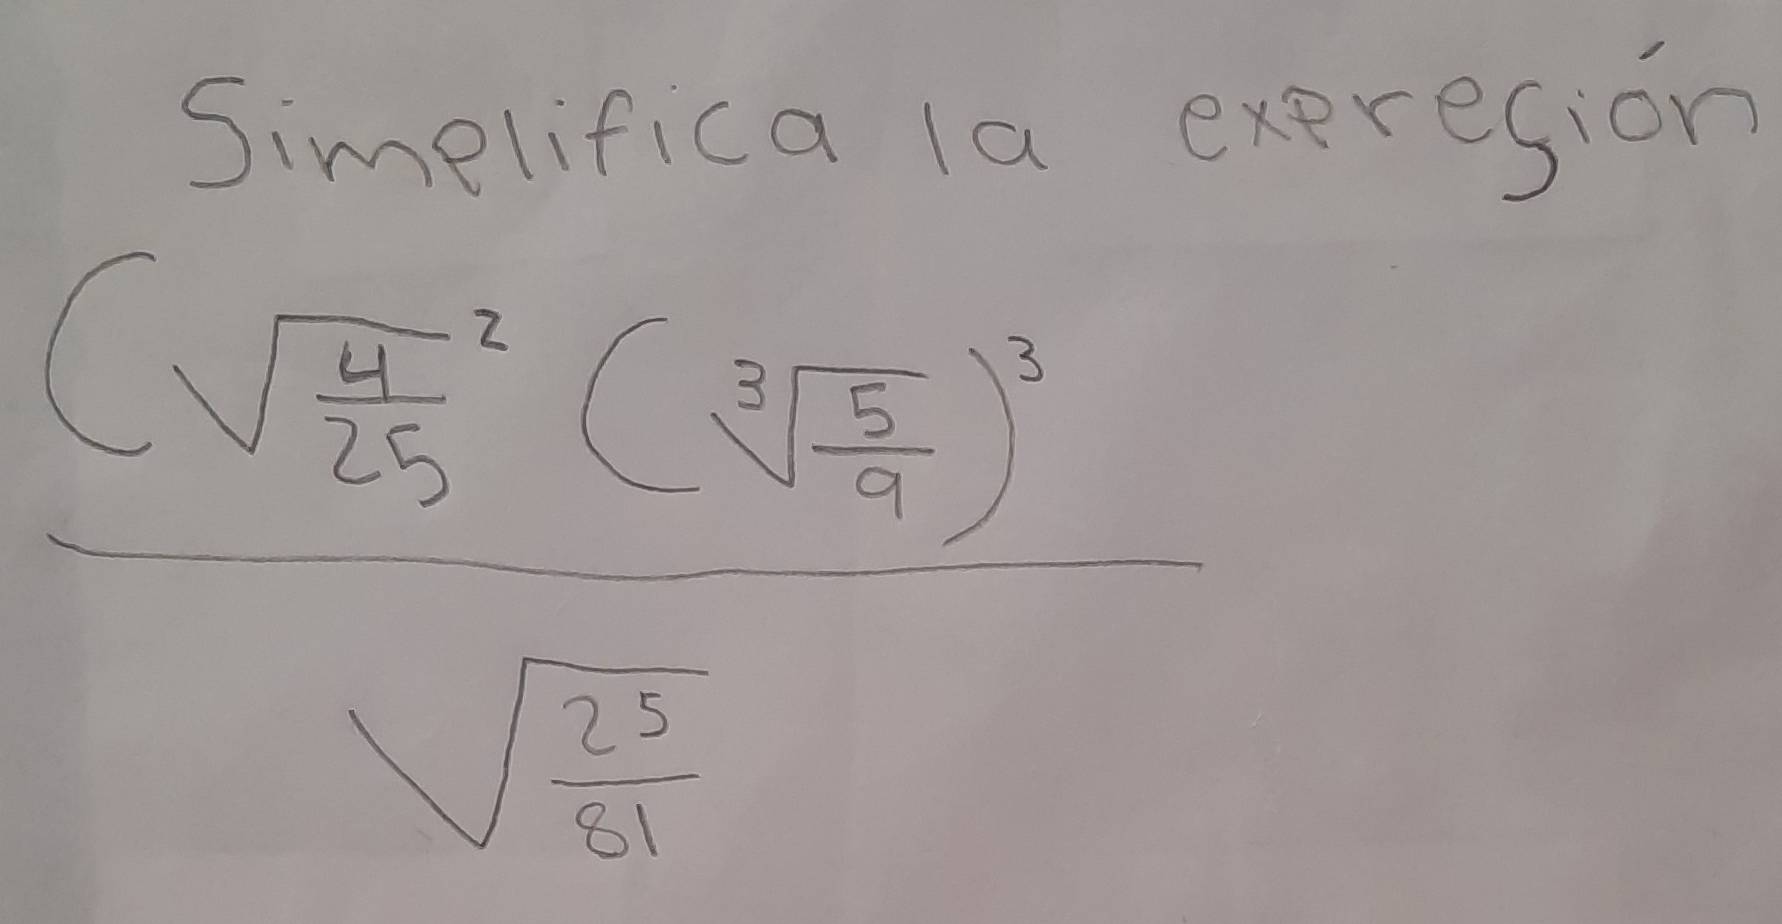 Simplifica la expresión
(√(4/25)² (∛(5/9))³
√(25/81)